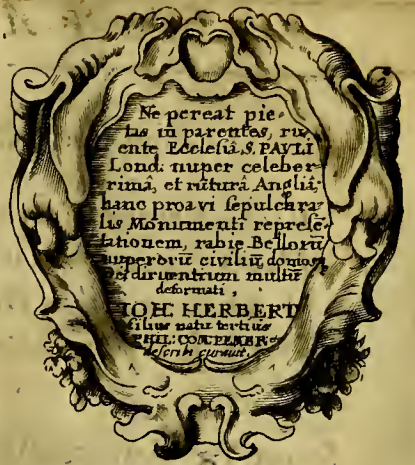 Ne pereat pie-
tas in parentes, ru-
ente Ecclesiâ, S. PAVLI
Lond: nuper celeber-
rimâ, et ruturâ Angliâ;
hanc proavi sepulchra-
lis Monumenti represē-
tationem, rabie Bellorū
nuperorū civiliū domos
Dei diruentium multū
deformati,
IOH: HERBERT
filius natu tertius
PHIL: COM: PEMBR:
describi curavit.